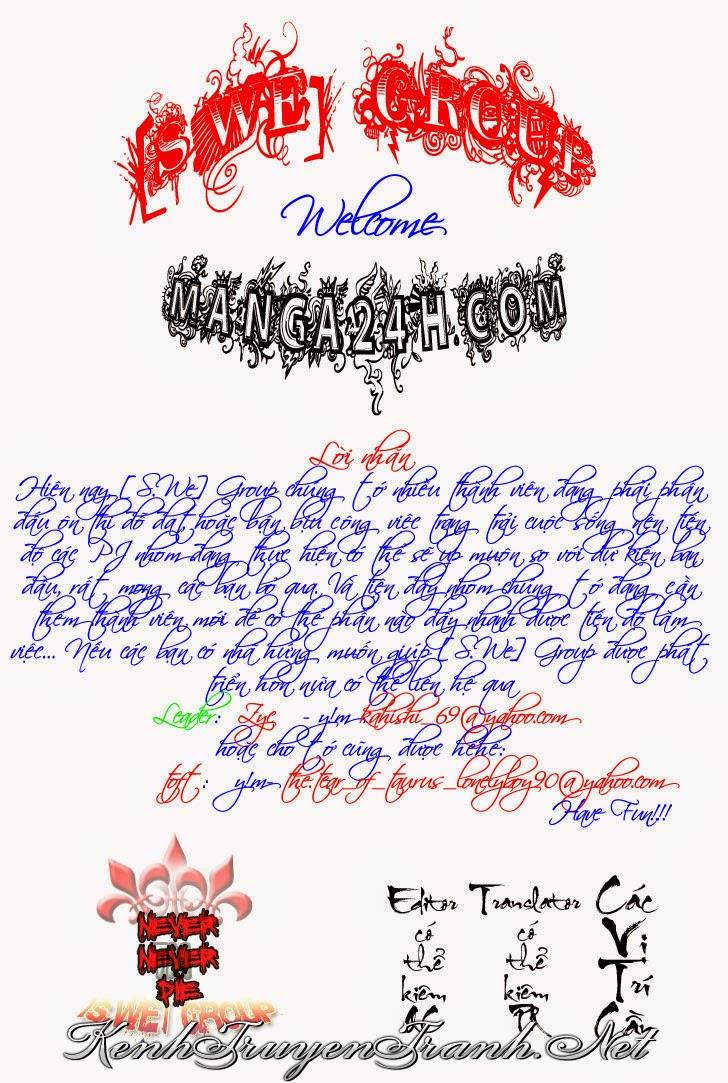 [S WE] GROUP
Welcome
MANGA24H.COM
Lời nhắn
Hiện nay [ S.We] Group chúng tớ nhiều thành viên đang phải phấn
đấu ôn thi đỗ đạt hoặc bận bịu công việc trang trải cuộc sống nên tiến
độ các PJ nhóm đang thực hiện có thể sẽ up muộn so với dự kiến ban
đầu, rất mong các bạn bỏ qua. Và tiện đây nhóm chúng tớ đang cần
thêm thành viên mới để có thể phần nào đẩy nhanh được tiến độ làm
việc... Nếu các bạn có nhã hứng muốn giúp [ S.We] Group được phát
triển hơn nữa có thể liên hệ qua
Leader: Zyc - y!m kahishi_69@yahoo.com
hoặc cho tớ cũng được hêhê:
toft : y!m- the.tear_of_taurus_lonelyboy90@yahoo.com
Have Fun!!!
NEVER
NEVER
DIE
[S.WE] GROUP
Editor có thể kiêm QC
Translator có thể kiêm PR
Các Vị Trí Cần
KenhTruyenTranh.Net